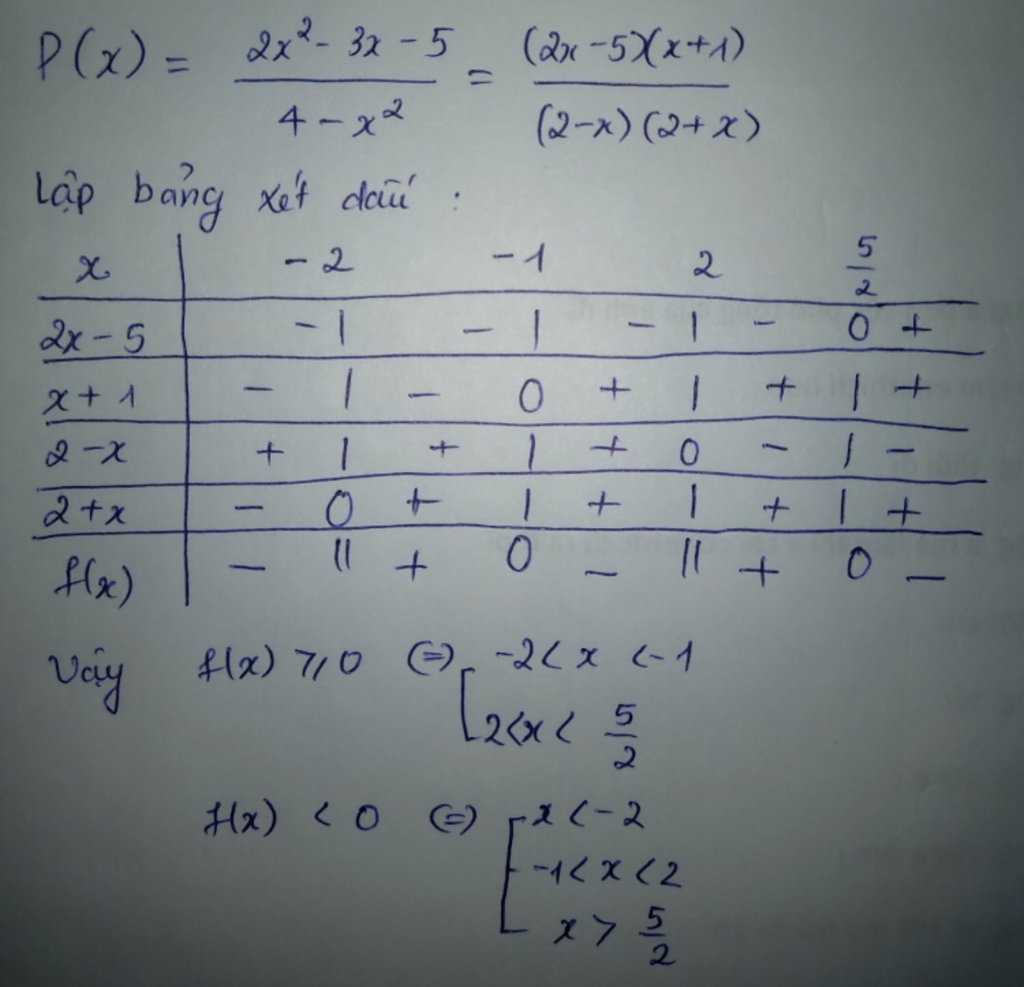 P(x) = (2x² - 3x - 5)/(4 - x²) = ((2x-5)(x+1))/((2-x)(2+x))
Lập bảng xét dấu :
x | -2 -1 2 5/2
2x-5 | - | - | - | - 0 +
x+1 | - | - 0 + | + | +
2-x | + | + | + 0 - | -
2+x | - 0 + | + | + | +
f(x) | - || + 0 - || + 0 -
Vậy f(x) ⩾ 0 (=) [ -2 < x < -1
2 < x < 5/2
f(x) < 0 (=) [ x < -2
-1 < x < 2
x > 5/2